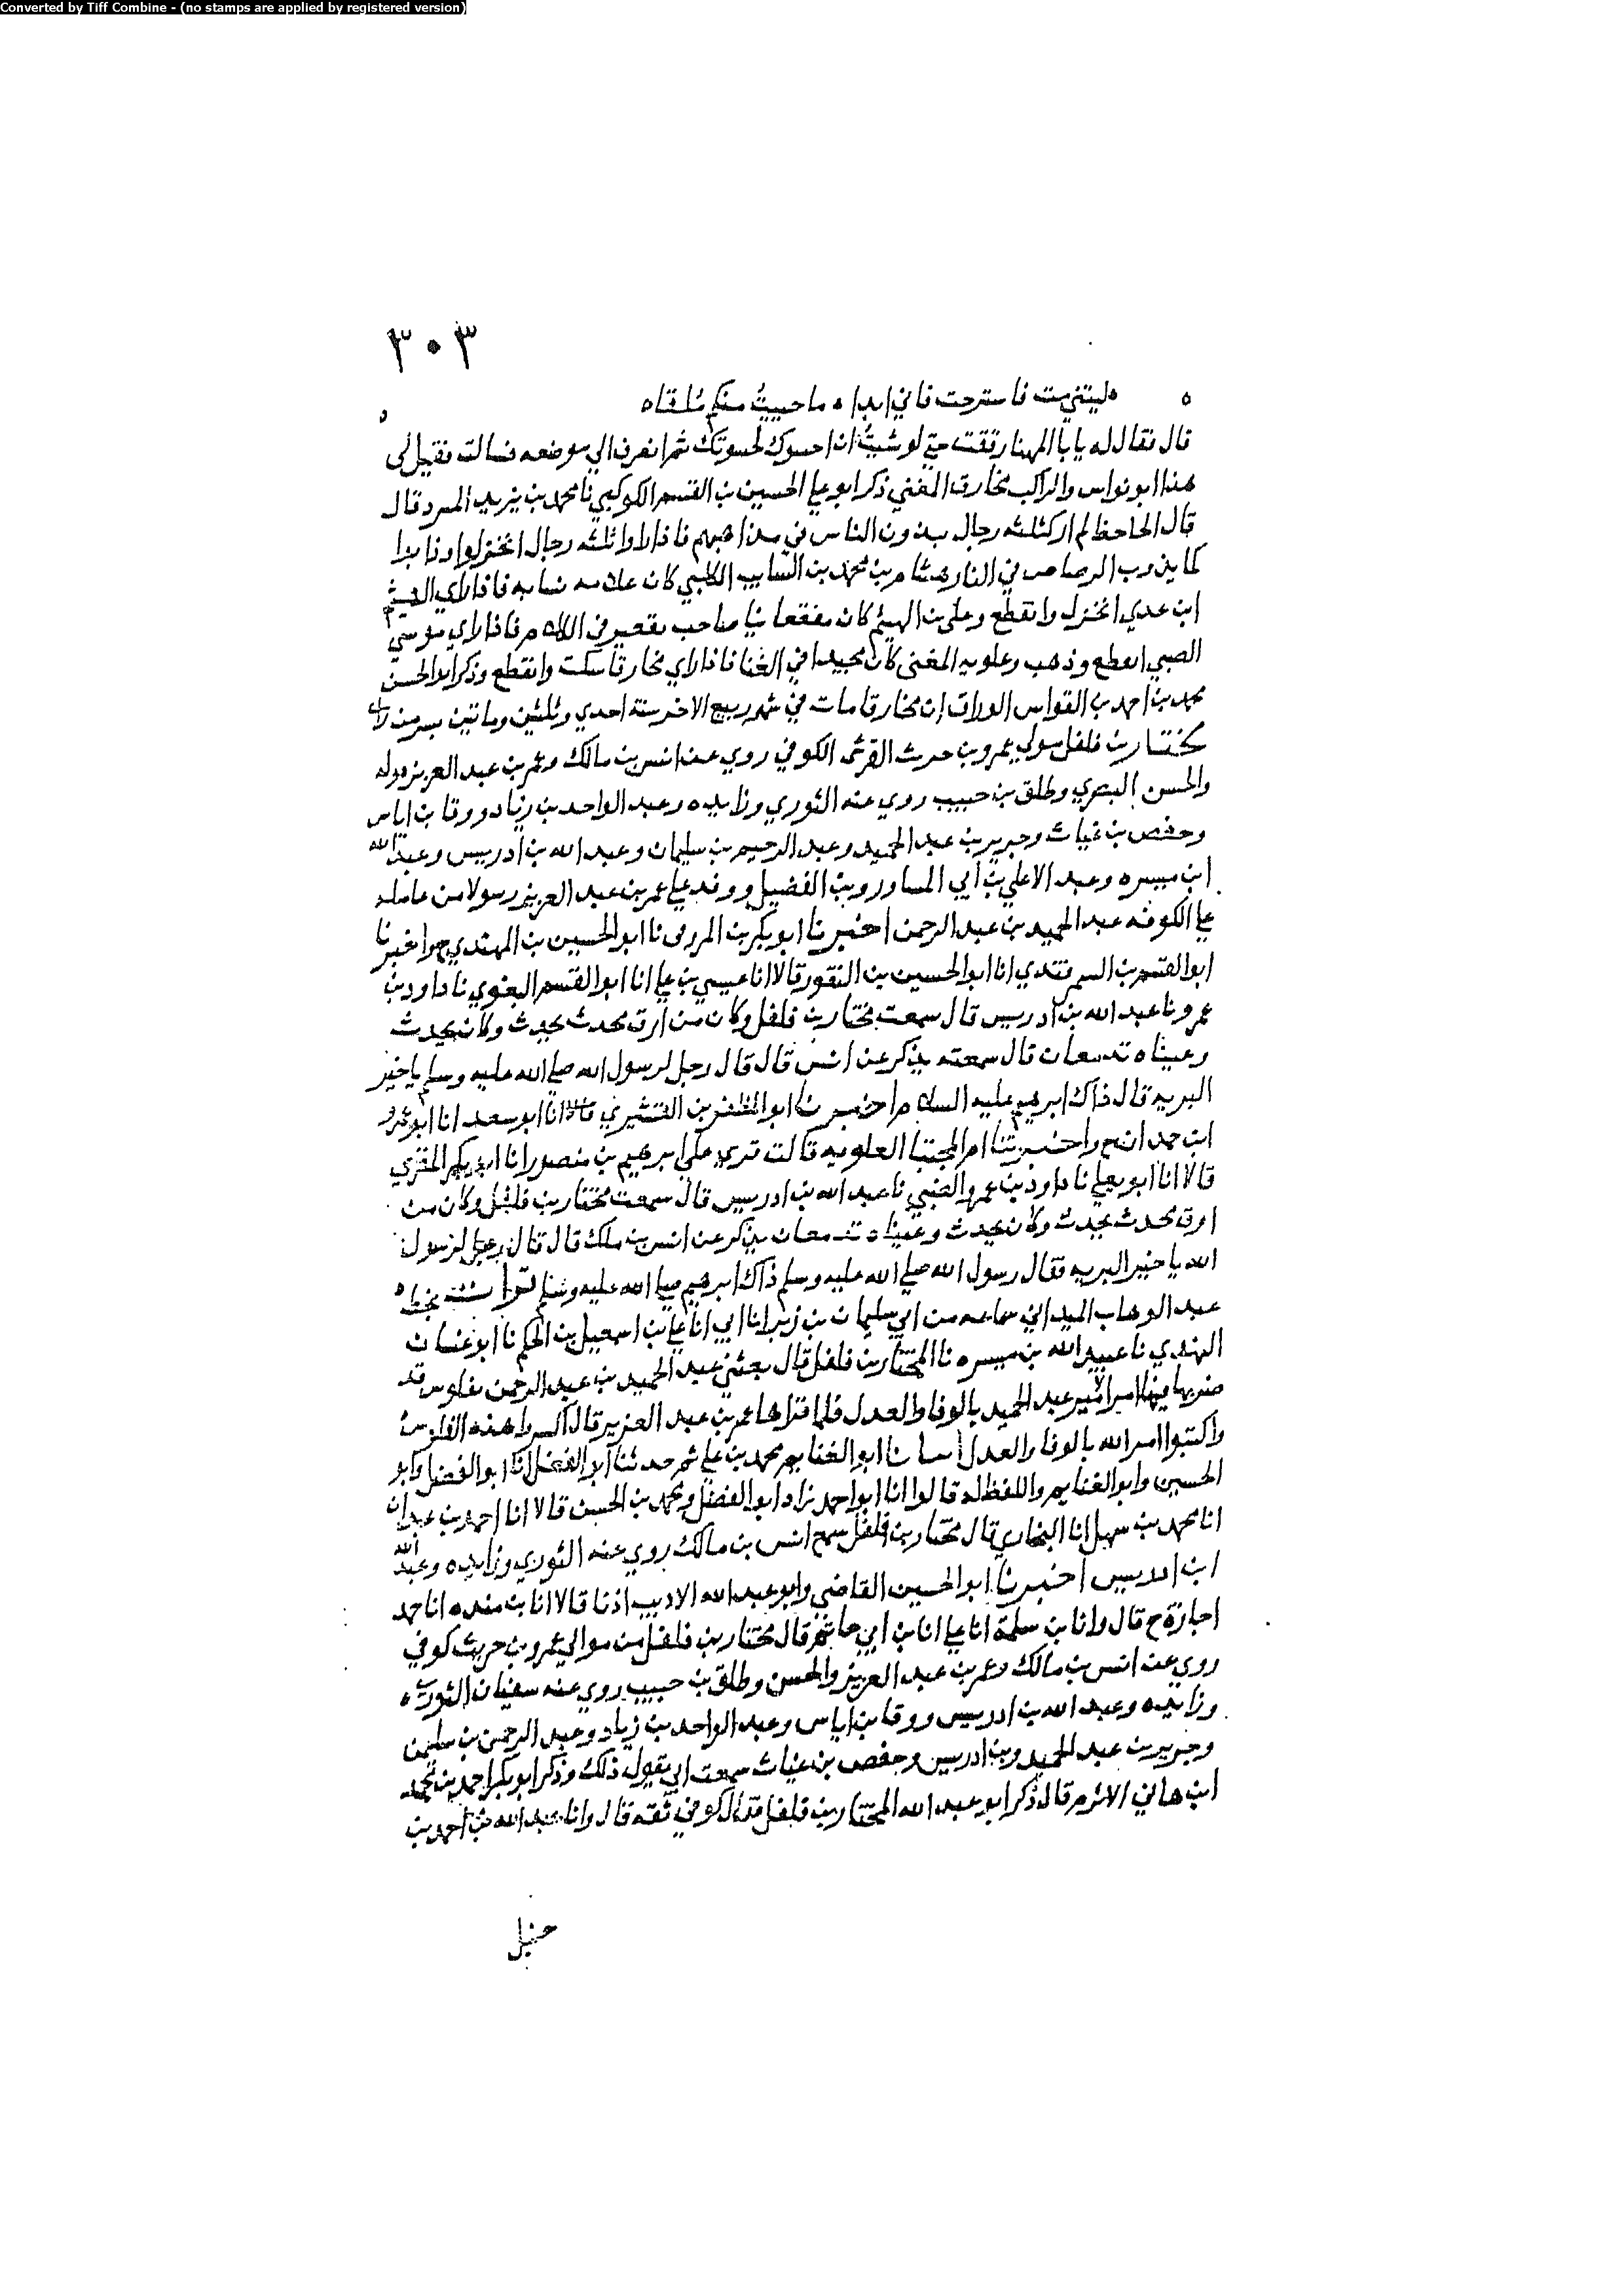 Converted by Tiff Combine - (no stamps are applied by registered version)
٣٠٣
ليتني مت فاسترحت فاني ابدا ه ما حييت منكم ملقاه
قال فقال له يابا المهنا رققت حتى لو شيت ان احسوك لحسوتك ثم انصرف الي موضعه فسالت فقيل لي
هذا ابو نواس والراكب مخارق المغني ذكر ابو علي الحسين بن القسم الكوكبي نا محمد بن يزيد المبرد قال
قال الجاحظ لم ار كثلثه رجال يبذون الناس في مذاهبهم فاذا راوا ثلثه رجال انخزلوا وذابوا
كما يذوب الرصاص في النار هشام بن محمد بن السايب الكلبي كان علامه نسابه فاذا راي الهيثم
ابن عدي انخزل وانقطع وعلي بن الهيثم كان مفقعا نيا صاحب تقعير في الكلام فاذا راي موسي
الضبي انقطع وذهب وعلويه المغنى كان مجيدا في الغنا فاذا راي مخارقا سكت وانقطع وذكر ابو الحسن
محمد بن احمد بن القواس الوراق ان مخارقا مات في شهر ربيع الاخر سنة احدي وثلثين وماتين بسر من راى
مختار بن فلفل مولي عمرو بن حريث القرشي الكوفي روي عن انس بن مالك وعمر بن عبد العزيز
والحسن البصري وطلق بن حبيب روي عنه الثوري وزايده وعبد الواحد بن زياد ووقا بن اياس
وحفص بن غياث وجرير بن عبد الحميد وعبد الرحيم بن سليمان وعبد الله بن ادريس وعبد الله
ابن ميسره وعبد الاعلي بن ابي المساور وبن الفضيل ووفد علي عمر بن عبد العزيز رسولا من عامله
علي الكوفه عبد الحميد بن عبد الرحمن اخبرنا ابو بكر بن المزرفي نا ابو الحسين بن المهتدي ح واخبرنا
ابو القسم بن السمرقندي انا ابو الحسين بن النقور قالا انا عيسي بن علي انا ابو القسم البغوي نا داود بن
عمرو نا عبد الله بن ادريس قال سمعت مختار بن فلفل وكان من ارق محدث يحدث وكان يحدث
وعيناه تدمعان قال سمعته يذكر عن انس قال قال رجل لرسول الله صلي الله عليه وسلم يا خير
البريه قال ذاك ابرهيم عليه السلام اخبرنا ابو المظفر بن القشيري انا ابو سعد انا ابو عمرو
ابن حمدان ح واخبرتنا ام المجتبا العلويه قالت قري علي ابرهيم بن منصور انا ابو بكر المقري
قالا انا ابو يعلي نا داود بن عمرو الضبي نا عبد الله بن ادريس قال سمعت مختار بن فلفل وكان من
ارق محدث يحدث وكان يحدث وعيناه تدمعان يذكر عن انس بن ملك قال قال رجل لرسول
الله يا خير البريه فقال رسول الله صلي الله عليه وسلم ذاك ابرهيم صلي الله عليه وسلم قرات بخط
عبد الوهاب الميداني سماعه من ابي سليمان بن زبر انا ابي انا علي بن اسمعيل بن الحكم نا ابو غسان
النهدي نا عبيد الله بن ميسره نا المختار بن فلفل قال بعثني عبد الحميد بن عبد الرحمن بفلوس قد
ضربها فيها امر الامير عبد الحميد بالوفا والعدل فلما قراها عمر بن عبد العزيز قال اكسروا هذه الفلوس
واكتبوا امر الله بالوفا والعدل انبانا ابو الغنايم محمد بن علي ثم حدثنا ابو الفضل انا ابو الفضل وابو
الحسين وابو الغنايم واللفظ له قالوا انا ابو احمد زاد ابو الفضل ومحمد بن الحسن قالا انا احمد بن عبدان
انا محمد بن سهل انا البخاري قال مختار بن فلفل سمع انس بن مالك روي عنه الثوري وزايده وعبد الله
ابن ادريس اخبرنا ابو الحسين القاضي وابو عبد الله الاديب اذنا قالا انا بن منده انا حمد
اجازة ح قال وانا بن سلمة انا علي انا بن ابي حاتم قال مختار بن فلفل من موالي عمرو بن حريث كوفي
روي عن انس بن مالك وعمر بن عبد العزيز والحسن وطلق بن حبيب روي عنه سفيان الثوري
وزايده وعبد الله بن ادريس ووقا بن اياس وعبد الواحد بن زياد وعبد الرحمن بن سليمن
وجرير بن عبد الحميد وبن ادريس وحفص بن غياث سمعت ابي يقول ذلك وذكر ابو بكر احمد بن محمد
ابن هاني الاثرم قال ذكر ابو عبد الله المختار بن فلفل فقال كوفي ثقه قال وانا عبد الله بن احمد بن
حنبل